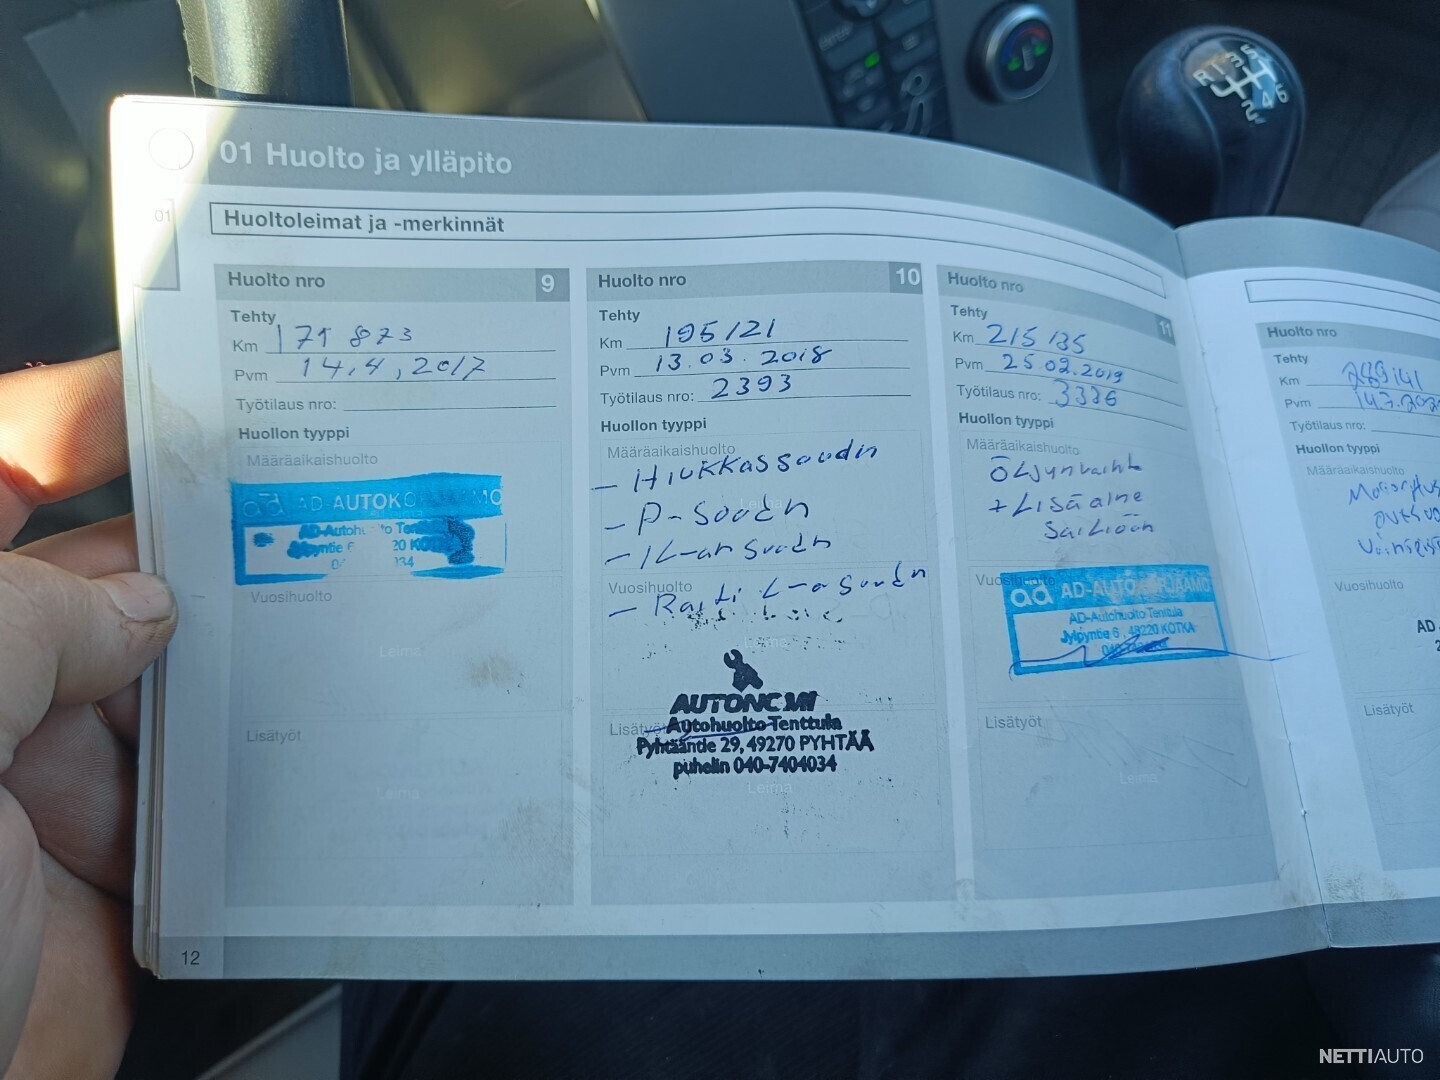 01 Huolto ja ylläpito
01
Huoltoleimat ja -merkinnät
Huolto nro 9
Tehty
Km 171 873
Pvm 14.4, 2017
Työtilaus nro:
Huollon tyyppi
Määräaikaishuolto
ad AD-AUTOKORJAAMO
AD-Autohuolto
20 KOTKA
Vuosihuolto
Leima
Lisätyöt
Leima
Huolto nro 10
Tehty
Km 195121
Pvm 13.03.2018
Työtilaus nro: 2393
Huollon tyyppi
Määräaikaishuolto
- Hiukkassuodn
- P-Suodn
- IL-an suodn
Vuosihuolto
- Raiti L-a suodn
Leima
AUTONOMI
Lisätyöt Autohuolto Tenttula
Pyhtääntie 29, 49270 PYHTÄÄ
puhelin 040-7404034
Leima
Huolto nro 11
Tehty
Km 215135
Pvm 25.02.2019
Työtilaus nro: 3386
Huollon tyyppi
Määräaikaishuolto
Öljynvaihto
+ Lisäaine
Säiliöön
Vuosihuolto
ad AD-AUTOKORJAAMO
AD-Autohuolto Tenttula
Jylpyntie 6, 48220 KOTKA
Lisätyöt
Leima
Huolto nro
Tehty
Km
Pvm
Työtilaus nro:
Huollon tyyppi
Määräaikaishuolto
Vuosihuolto
AD
Lisätyöt
12
R 1 3 5
2 4 6
NETTIAUTO